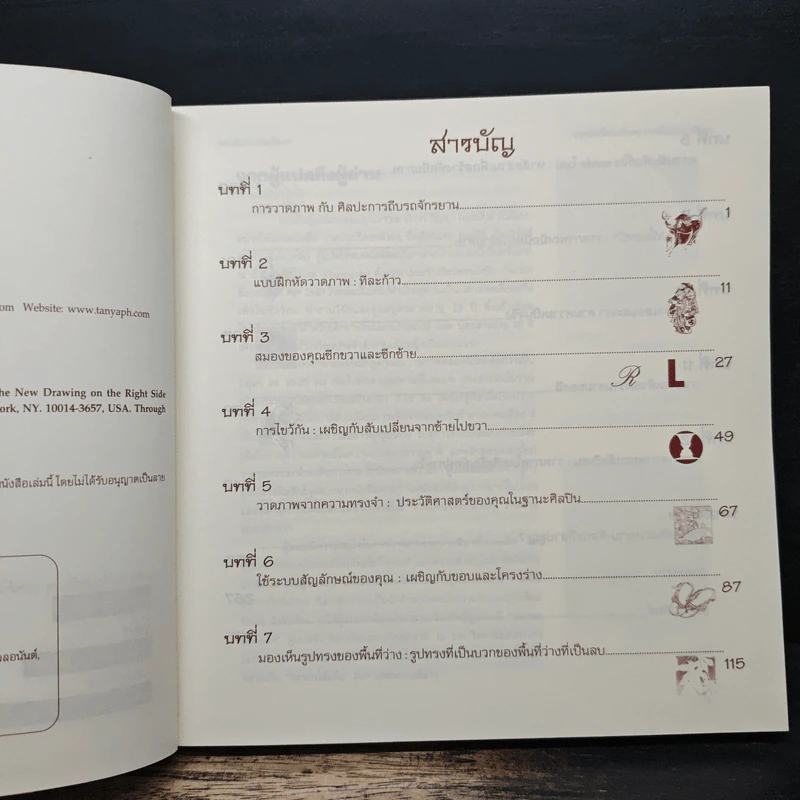 om Website: www.tanyaph.com
he New Drawing on the Right Side
ork, NY. 10014-3657, USA. Through
นังสือเล่มนี้ โดยไม่ได้รับอนุญาตเป็นลาย
ลอนันต์,
สารบัญ
บทที่ 1
การวาดภาพ กับ ศิลปะการถีบรถจักรยาน 1
บทที่ 2
แบบฝึกหัดวาดภาพ : ทีละก้าว 11
บทที่ 3
สมองของคุณซีกขวาและซีกซ้าย 27
R L
บทที่ 4
การไขว้กัน : เผชิญกับสับเปลี่ยนจากซ้ายไปขวา 49
บทที่ 5
วาดภาพจากความทรงจำ : ประวัติศาสตร์ของคุณในฐานะศิลปิน 67
บทที่ 6
ใช้ระบบสัญลักษณ์ของคุณ : เผชิญกับขอบและโครงร่าง 87
บทที่ 7
มองเห็นรูปทรงของพื้นที่ว่าง : รูปทรงที่เป็นบวกของพื้นที่ว่างที่เป็นลบ 115